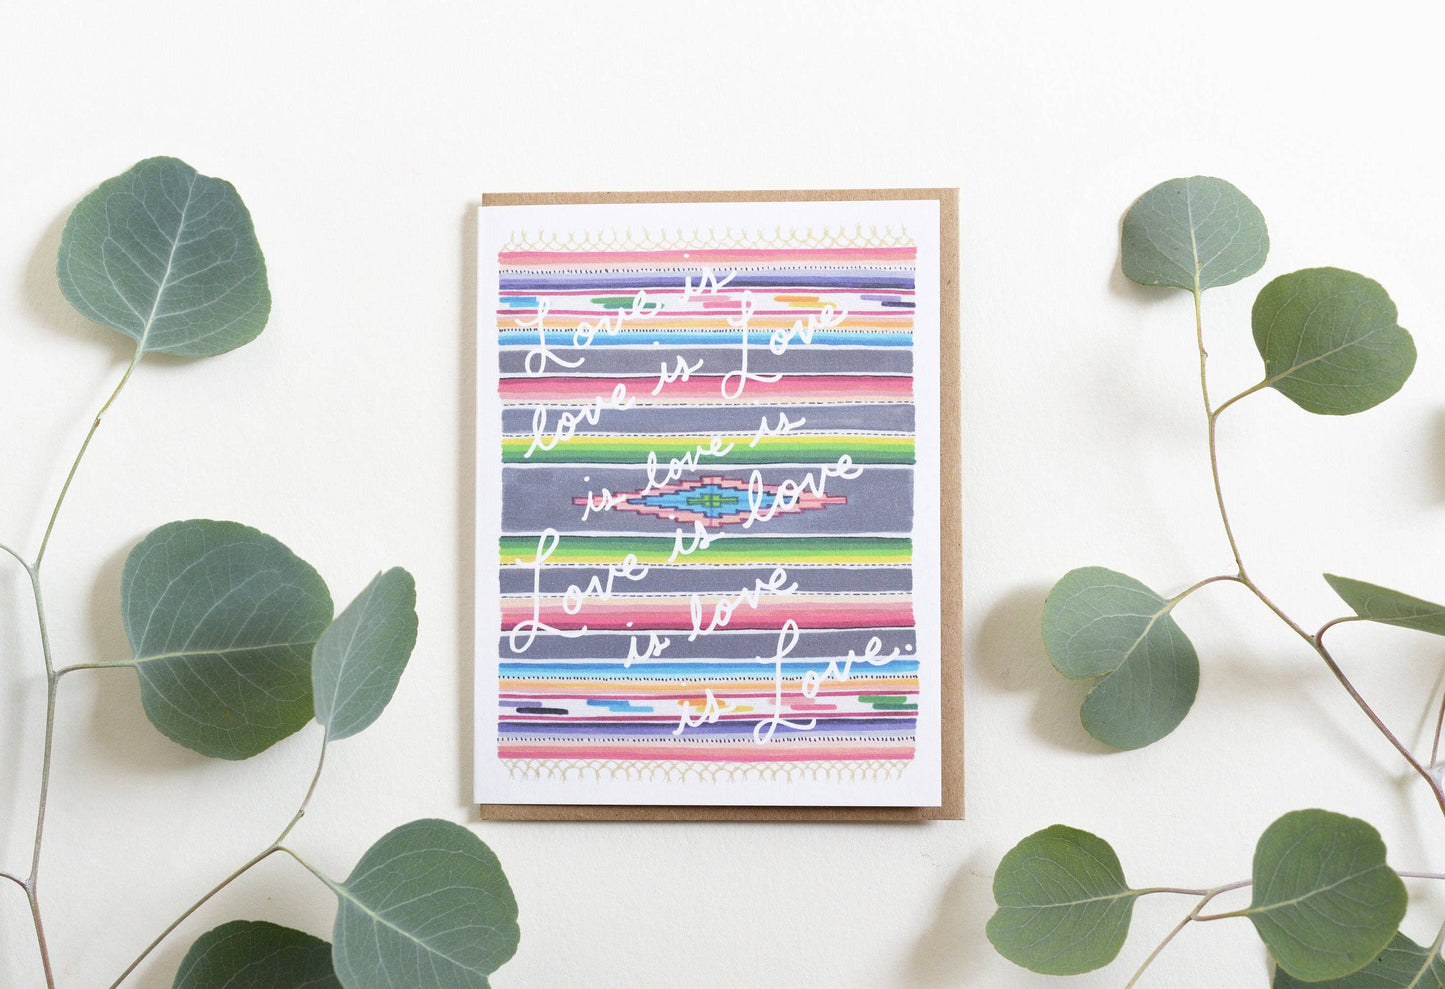 Love is
love is Love
is love is
Love is love
is love
is Love.